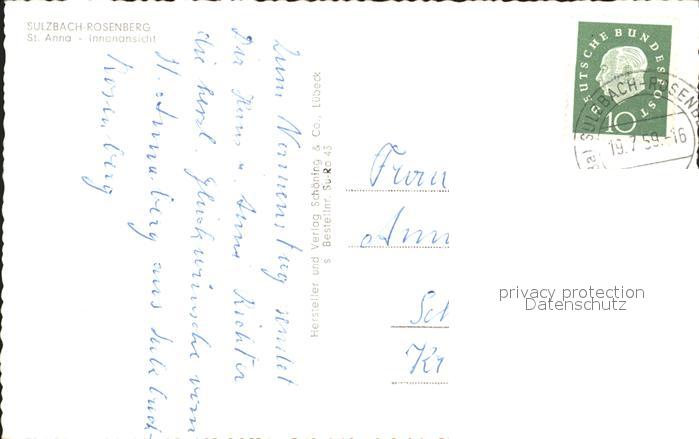 SULZBACH-ROSENBERG
St. Anna - Innenansicht
Zum Namenstag sendet
Dir Hans u. Anni Richter
die herzl. Glückwünsche vom
St. Annaberg aus Sulzbach-
Rosenberg
Hersteller und Verlag Schöning & Co., Lübeck
s Bestellnr. Su-Ro 43
DEUTSCHE BUNDESPOST
10
SULZBACH-ROSENB
19.7.59.-16
Frau
Ann
Sch
Kr
privacy protection
Datenschutz